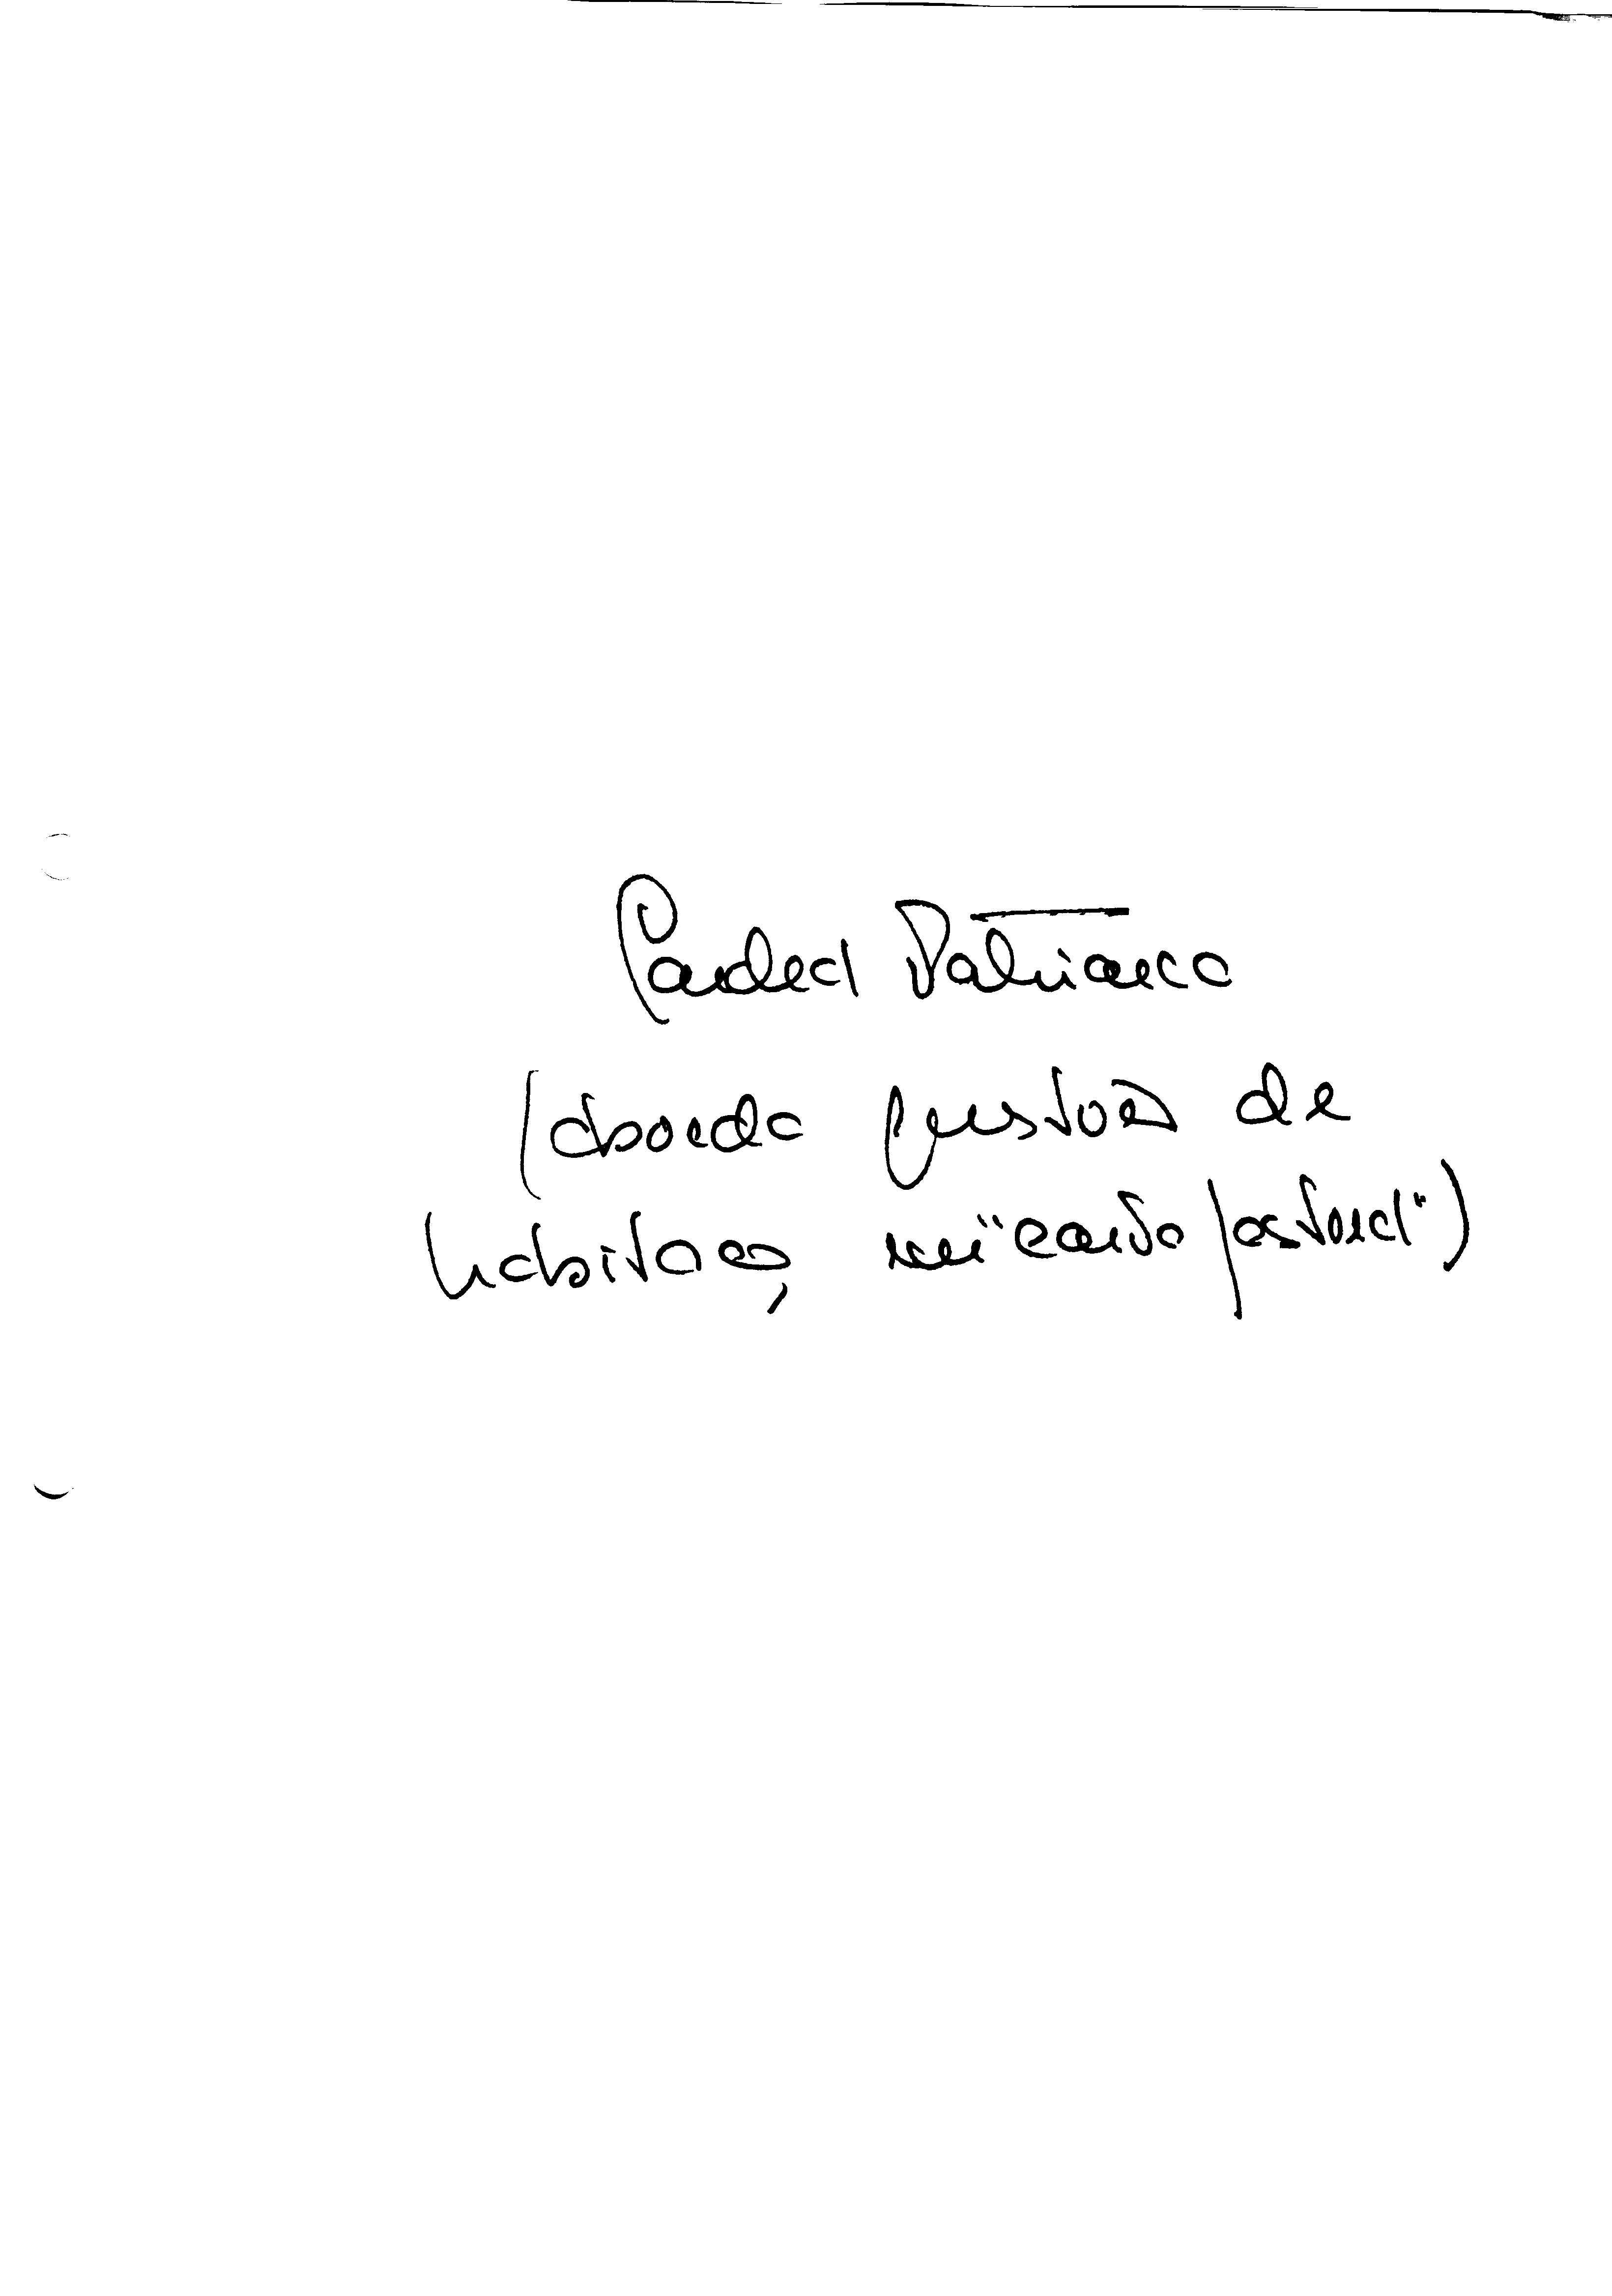 Cardeal Patriarca
(aborda questões de
habitação, em "carta pastoral")